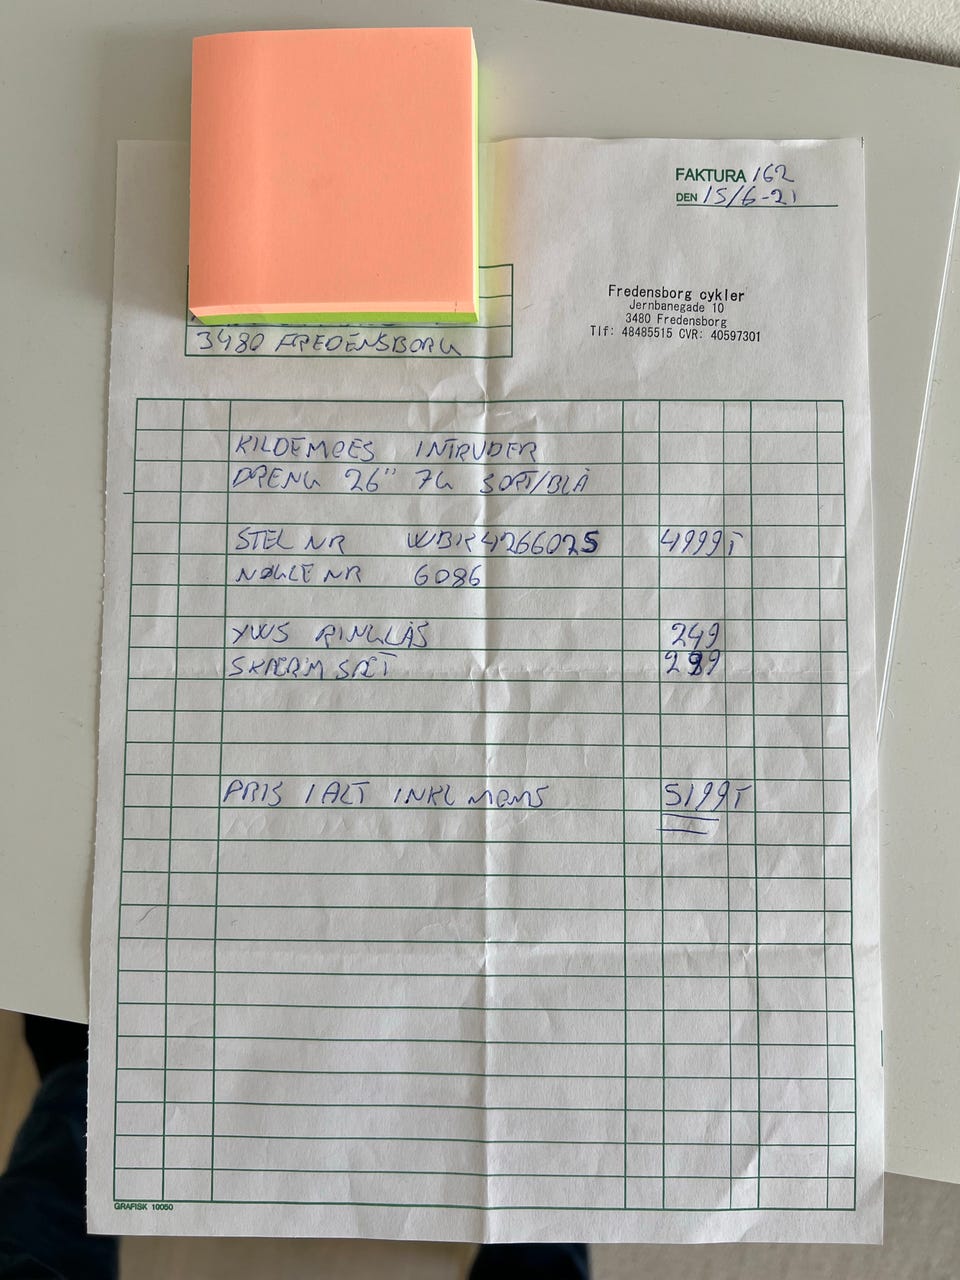 FAKTURA 162
DEN 15/6-21
Fredensborg cykler
Jernbanegade 10
3480 Fredensborg
Tlf: 48485515 CVR: 40597301
3480 FREDENSBORG
KILDEMOES INTRUDER
DRENG 26" 7G SORT/BLÅ
STEL NR WBK4266025 4999T
NØGLE NR 6086
RINGLÅS 249
SKÆRMSÆT 299
PRIS I ALT INKL MOMS 5199T
GRAFISK 10050